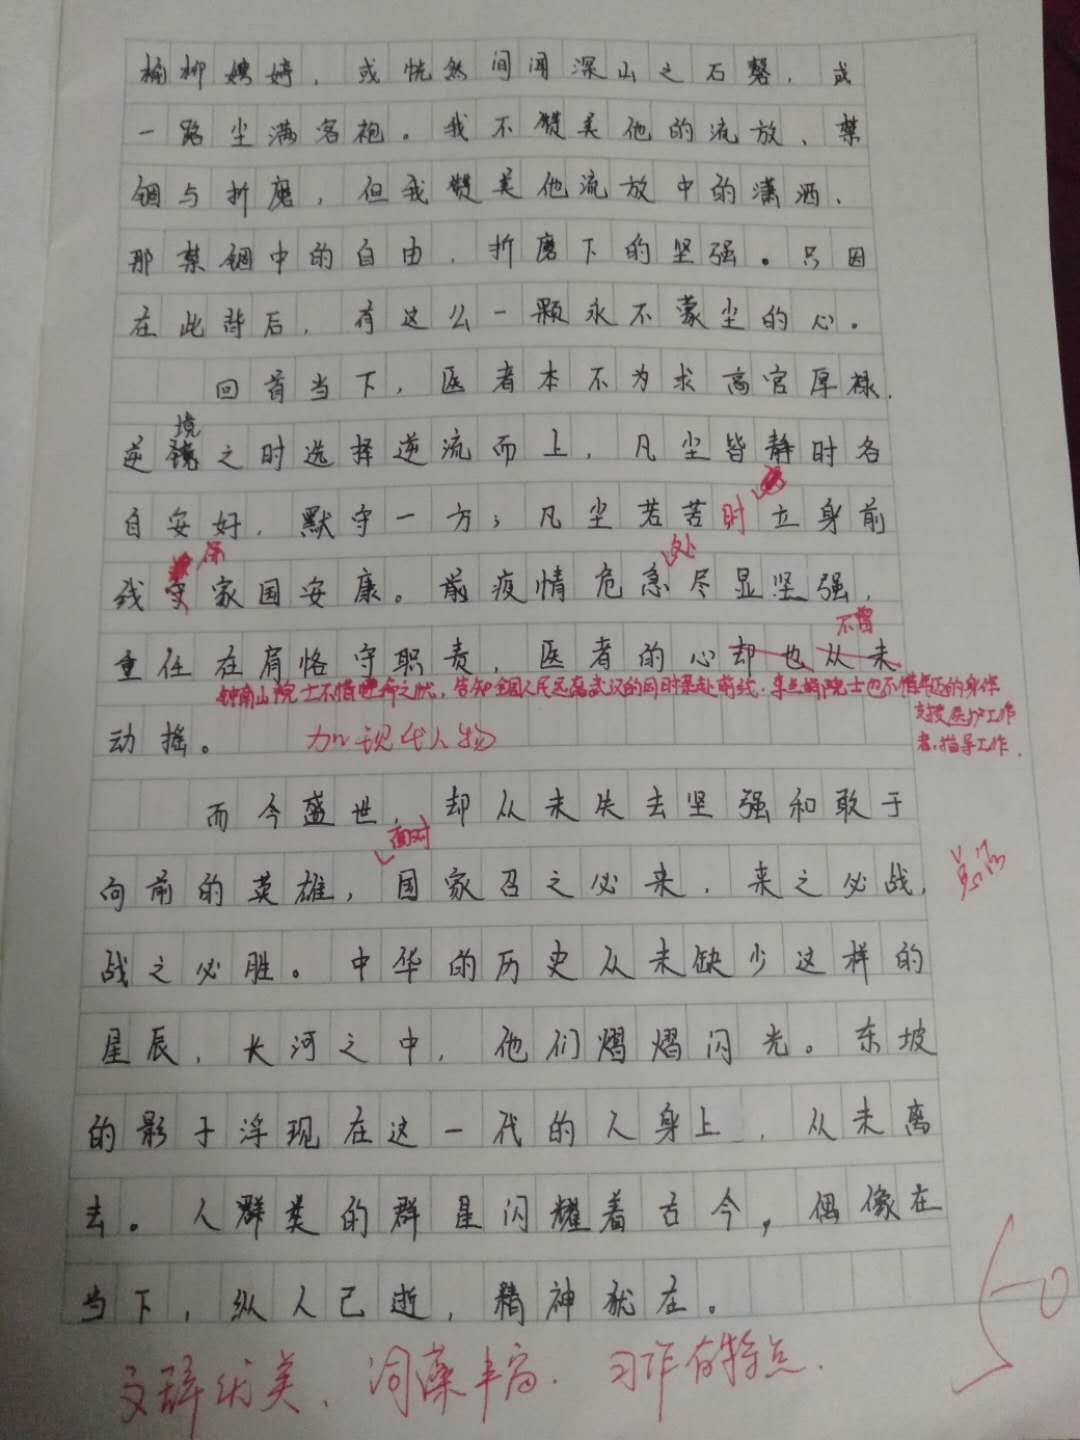 柳娉婷，或恍然间闻深山之石磬，或
一路尘满客袍。我不赞美他的流放、禁
锢与折磨，但我赞美他流放中的潇洒，
那禁锢中的自由，折磨下的坚强。只因
在此背后，有这么一颗永不蒙尘的心。
回首当下，医者本不为求高官厚禄，
境
逆镜之时选择逆流而上，凡尘皆静时各
自安好，默守一方；凡尘若苦时立身前
保
线守家国安康。前疫情危急尽显坚强，
处
不曾
重任在肩恪守职责，医者的心却也从未
钟南山院士不惜生命之忧，告知全国人民远离武汉的同时奔赴前线，李兰娟院士也不惜年迈的身体
支援医护工作
者，指导工作．
动摇。
加现代人物
而今盛世，却从未失去坚强和敢于
面对
向前的英雄，国家召之必来，来之必战，
战之必胜。中华的历史从未缺少这样的
星辰，长河之中，他们熠熠闪光。东坡
的影子浮现在这一代的人身上，从未离
去。人群类的群星闪耀着古今，偶像在
当下，纵人已逝，精神犹在。
50
文辞优美、词藻丰富．习作有特点．